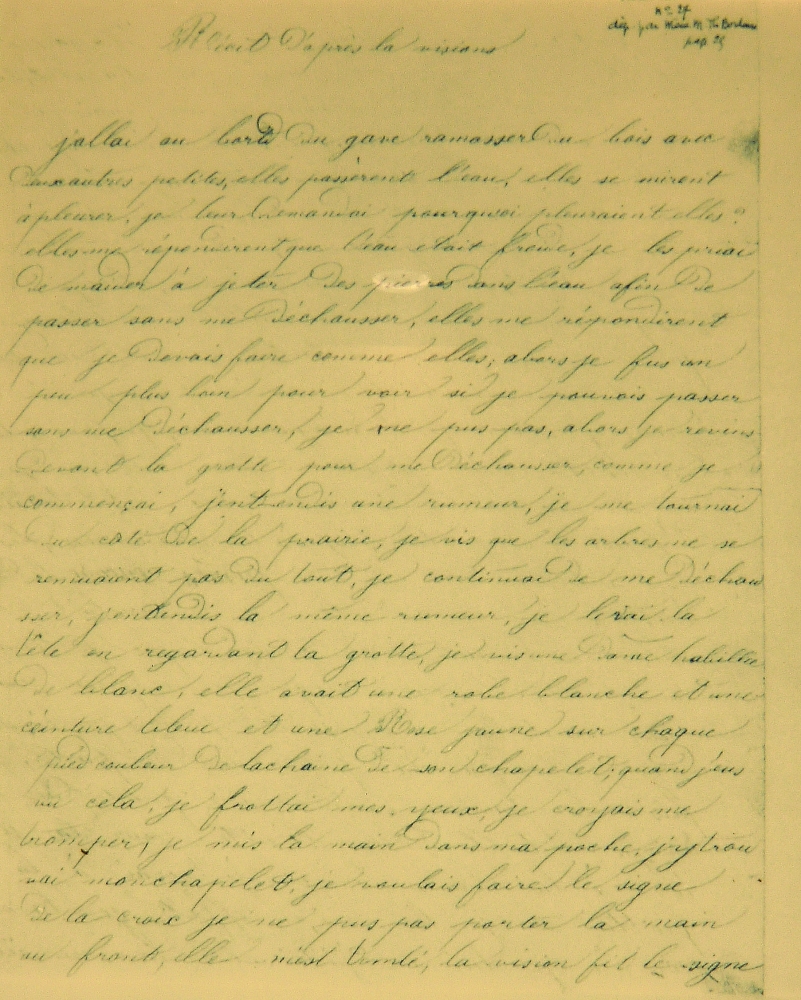 Nº 27
dép par Mère M. Th Bordenave
pag 29
Récit d'après la visions
j'allai au bord du gave ramasser du bois avec
deux autres petites, elles passèrent l'eau, elles se mirent
à pleurer, je leur demandai pourquoi pleuraient elles?
elles me répondirent que l'eau etait froide, je les priai
de m'aider à jeter des pierres dans l'eau afin de
passer sans me déchausser, elles me répondirent
que je devais faire comme elles; alors je fus un
peu plus loin pour voir si je pouvois passer
sans me déchausser, je ne pus pas, alors je revins
devant la grotte pour me déchausser, comme je
commençai, j'entendis une rumeur, je me tournai
du coté de la prairie, je vis que les arbres ne se
remuaient pas du tout, je continuai de me déchau
sser, j'entendis la même rumeur, je levai la
tête en regardant la grotte, je vis une dame habillée
de blanc, elle avait une robe blanche et une
ceinture bleue et une Rose jaune sur chaque
pied couleur de la chaine de son chapelet; quand j'eus
vu cela, je frottai mes yeux, je croyais me
tromper, je mis la main dans ma poche, j'y trou
vai mon chapelet, je voulais faire le signe
de la croix je ne pus pas porter la main
au front, elle m'est tombé, la vision fit le signe